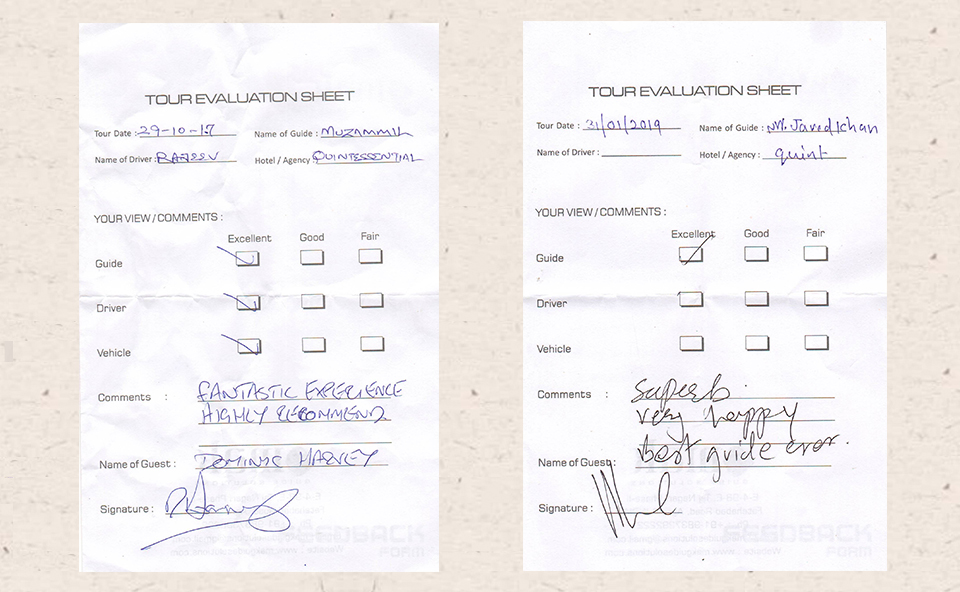 TOUR EVALUATION SHEET
Tour Date : 29-10-17 Name of Guide : MUZAMMIL
Name of Driver : RAJEEV Hotel / Agency : QUINTESSENTIAL
YOUR VIEW / COMMENTS :
Excellent Good Fair
Guide
Driver
Vehicle
Comments : FANTASTIC EXPERIENCE
HIGHLY RECOMMEND
Name of Guest : DOMINIC HARVEY
Signature :
FEEDBACK
FORM
TOUR EVALUATION SHEET
Tour Date : 31/01/2019 Name of Guide : Mr. Javed Khan
Name of Driver : Hotel / Agency : quint
YOUR VIEW / COMMENTS :
Excellent Good Fair
Guide
Driver
Vehicle
Comments : Superb.
very happy
best guide ever.
Name of Guest :
Signature :
FEEDBACK
FORM